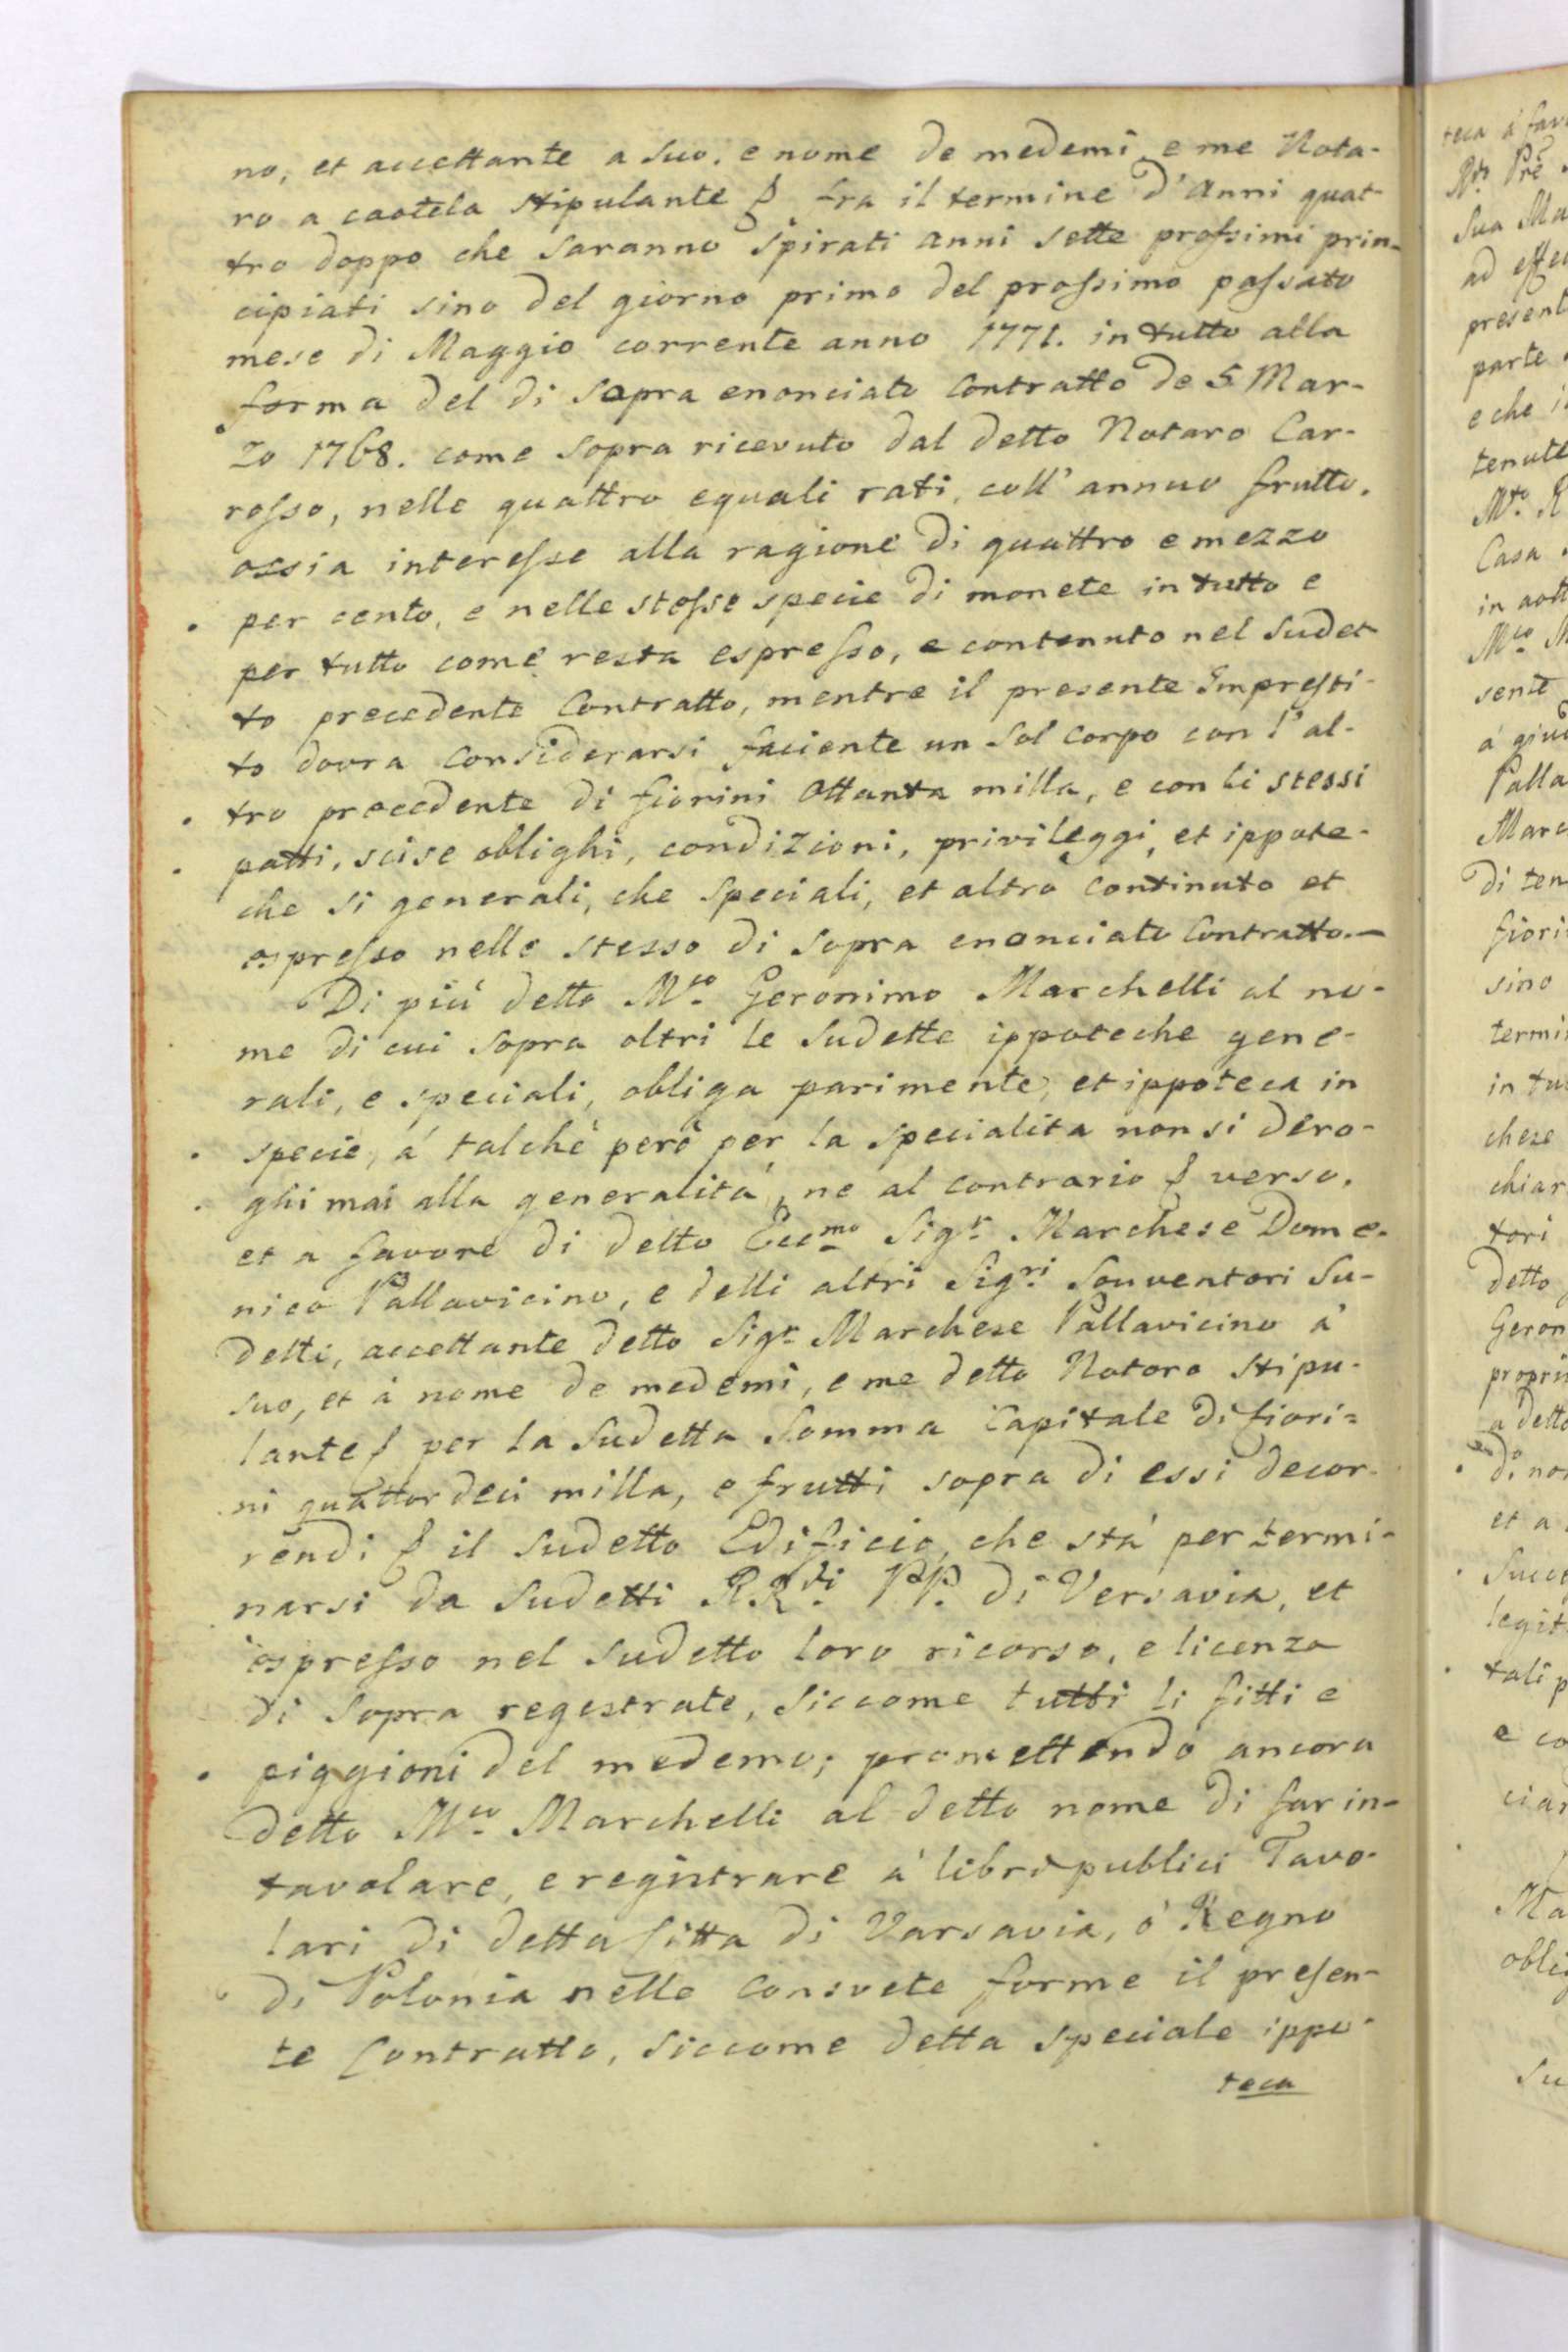 no, et accettante a suo, e nome de medemi e me Nota-
ro a caotela stipulante fra il termine d'Anni quat-
tro doppo che saranno spirati anni sette prossimi prin-
cipiati sino del giorno primo del prossimo passato
mese di Maggio corrente anno 1771. in tutto alla
forma del di sopra enonciato Contratto de 5 Mar-
zo 1768. come sopra ricevuto dal detto Notaro Car-
rosso, nelle quattro eguali rati, coll'annuo frutto,
ossia interesse alla ragione di quattro e mezzo
per cento, e nelle stesse specie di monete in tutto e
per tutto come resta espresso, e contenuto nel sudet-
to precedente Contratto, mentre il presente Impresti-
to dovra considerarsi faciente un sol corpo con l'al-
tro precedente di fiorini ottanta milla, e con li stessi
patti, scise oblighi, condizioni, privileggi, et ippote-
che si generali, che speciali, et altro continuto et
espresso nello stesso di sopra enonciato Contratto.—
Di piú detto M.co Geronimo Marchelli al no-
me di cui sopra oltri le sudette ippoteche gene-
rali, e speciali, obliga parimente, et ippoteca in
specie, á talchè però per la specialita non si dero-
ghi mai alla generalitá, ne al contrario verso,
et a favore di detto Ecc.mo Sig.r Marchese Dome-
nico Pallavicino, e delli altri Sig.ri Souventori Su-
detti, accettante detto Sig.r Marchese Pallavicino á
suo, et á nome de medemi, e me detto Notaro stipu-
lante per la sudetta Somma Capitale di fiori=
ni quattordeci milla, e frutti sopra di essi decor-
rendi il sudetto Edificio, che stá per termi-
narsi da sudetti R.R.di P.P. di Versavia, et
espresso nel sudetto loro ricorso, e licenza
di sopra regestrate, siccome tutti li fitti e
piggioni del medemo; promettendo ancora
detto M.co Marchelli al detto nome di far in-
tavolare, e registrare á libri publici Tavo-
lari di detta Citta di Varsavia, ó Regno
di Polonia nelle consuete forme il presen-
te Contratto, siccome detta speciale ippo-
teca